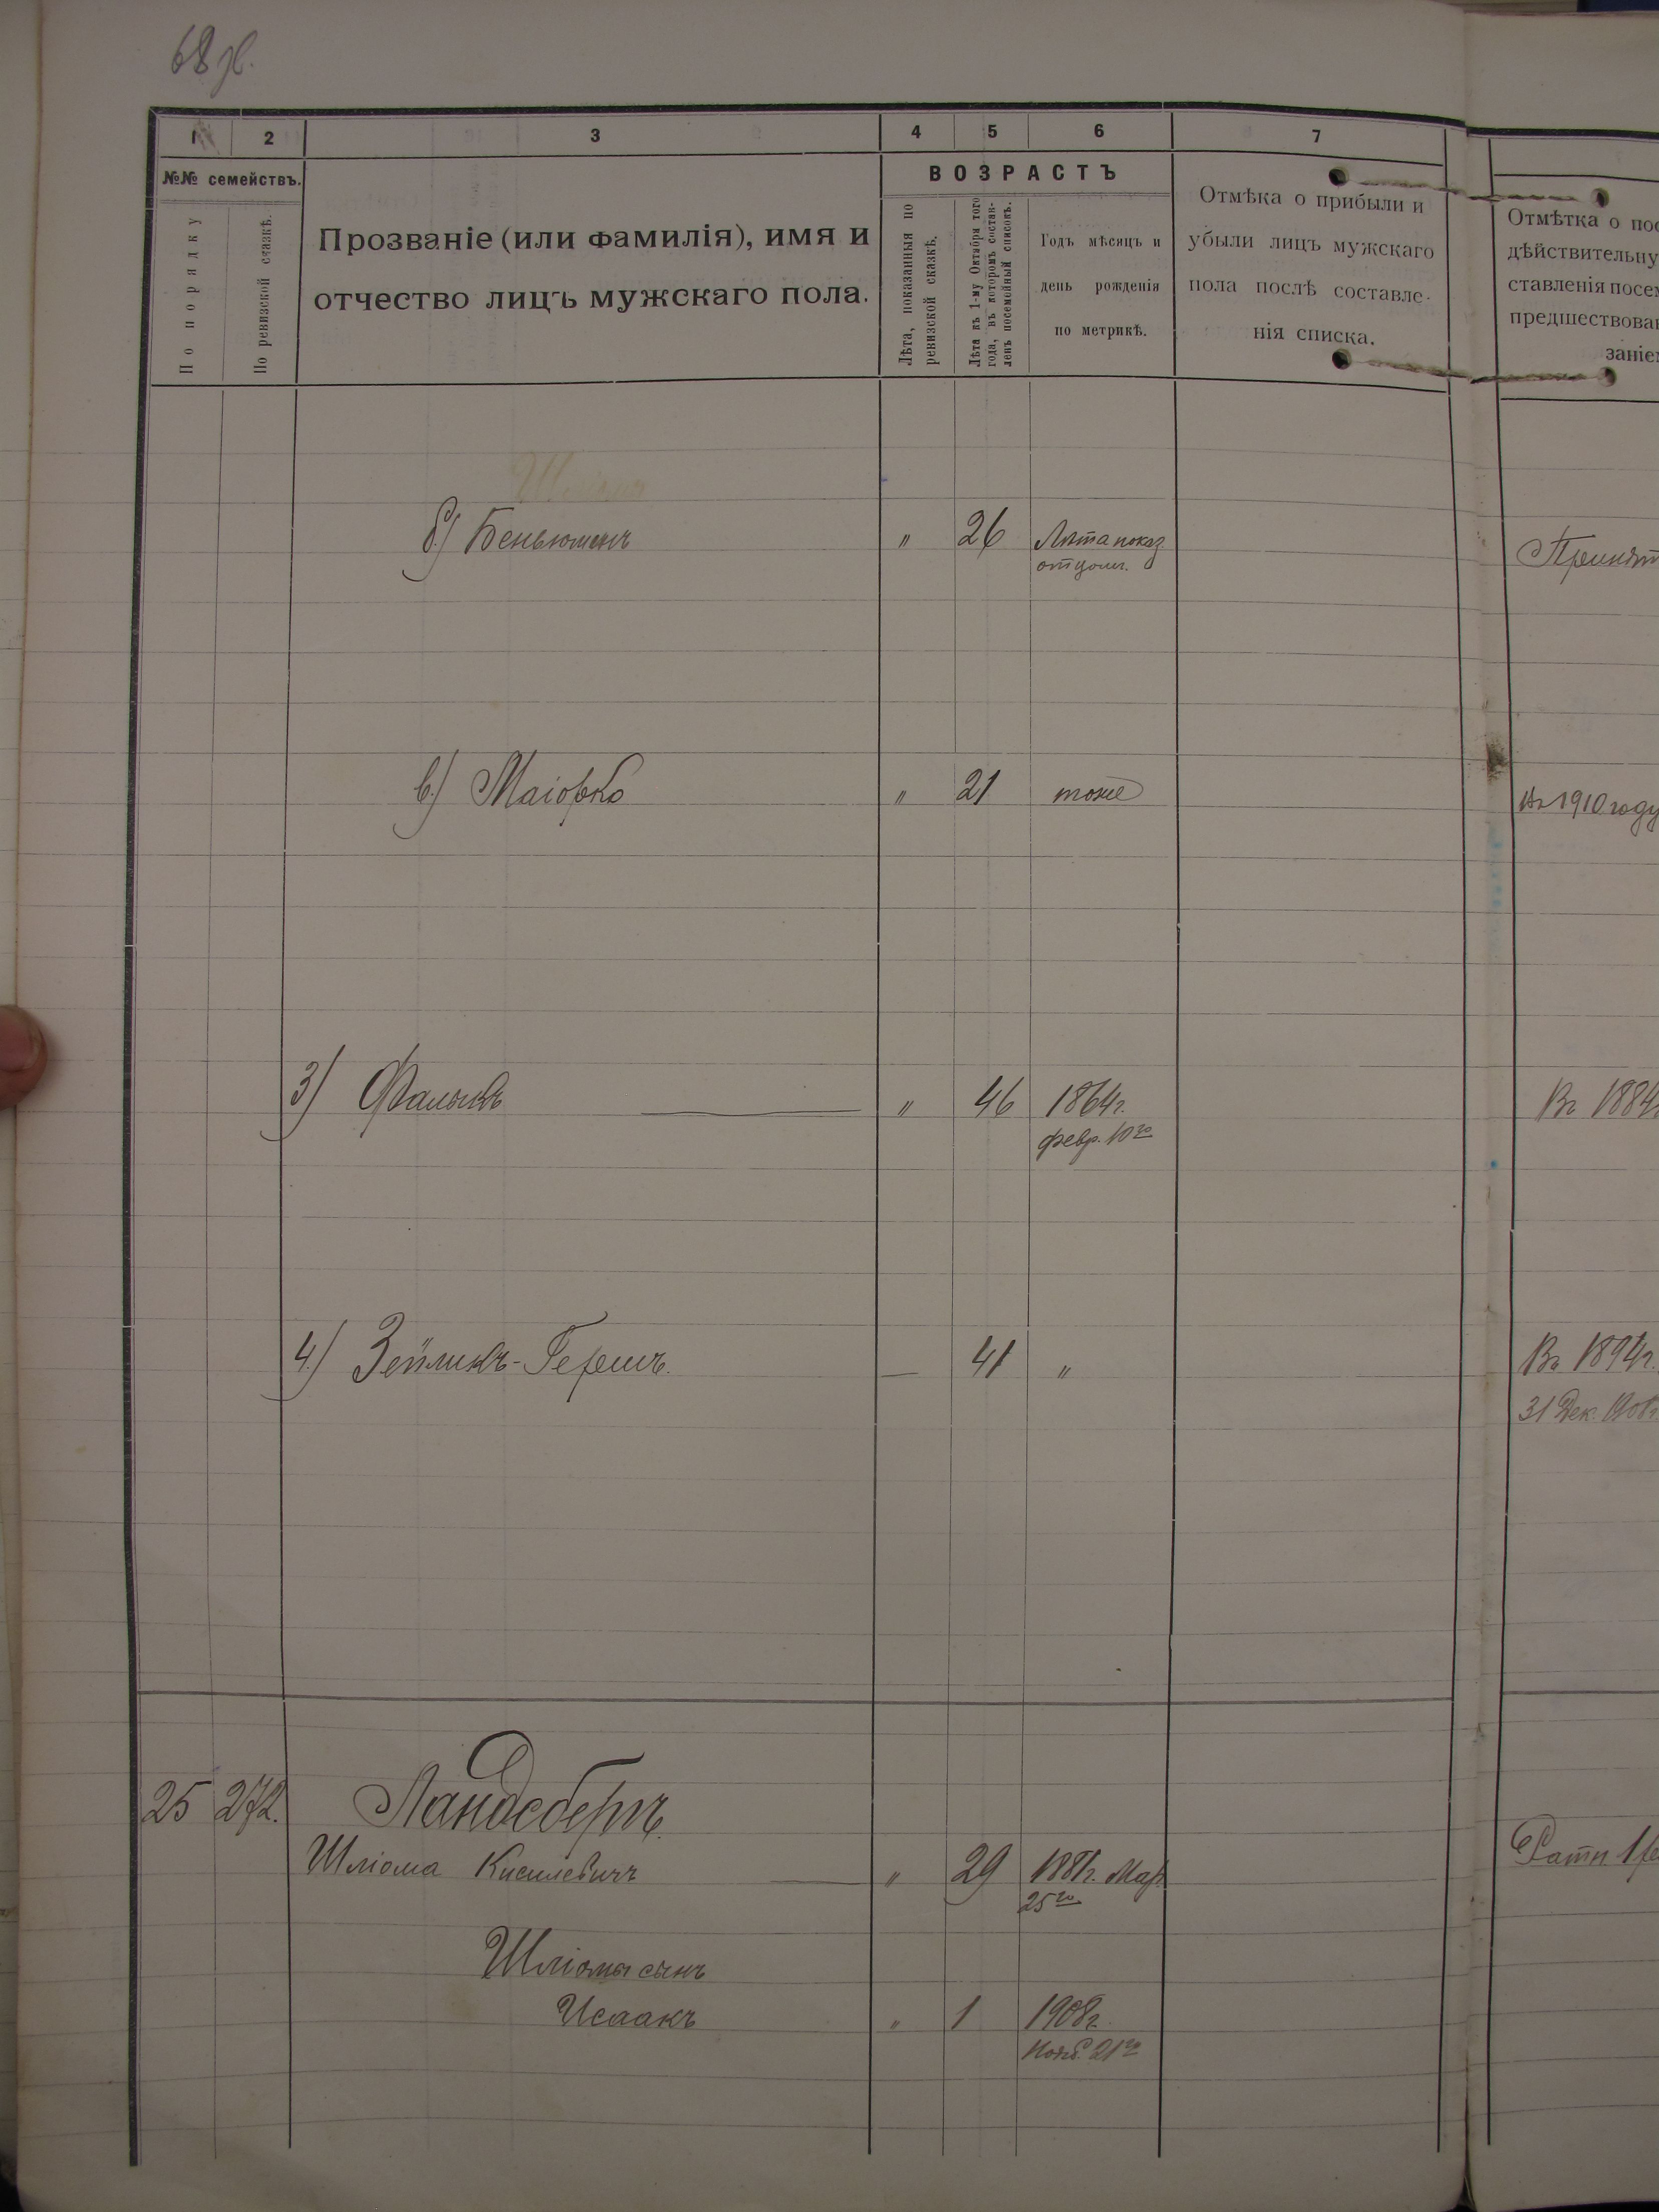 68 об.
1 2 3 4 5 6 7
№№ семействъ.
По порядку
По ревизской сказкѣ.
Прозваніе (или фамилія), имя и
отчество лицъ мужскаго пола.
ВОЗРАСТЪ
Лѣта, показанныя по
ревизской сказкѣ.
Лѣта къ 1-му Октября того
года, въ которомъ состав-
ленъ посемейный списокъ.
Годъ мѣсяцъ и
день рожденія
по метрикѣ.
Отмѣка о прибыли и
убыли лицъ мужскаго
пола послѣ составле-
нія списка.
Отмѣтка о пос
дѣйствительну
ставленія посем
предшествован
заніем
б) Беньюменъ " 26 Лѣта показ.
отцомъ.
Принят
в) Маіорко " 21 тоже
Въ 1910 году
3) Фалькъ " 46 1864г.
февр. 10го
Въ 1884
4) Зейликъ-Гершъ. — 41 "
Въ 1894г.
31 Дек.
25 272. Ландсбергъ.
Шліома Кисилевичъ " 29 1881г. Мар.
25го
Ратн. 1
Шліомы сынъ
Исаакъ " 1 1908г.
Нояб. 21го